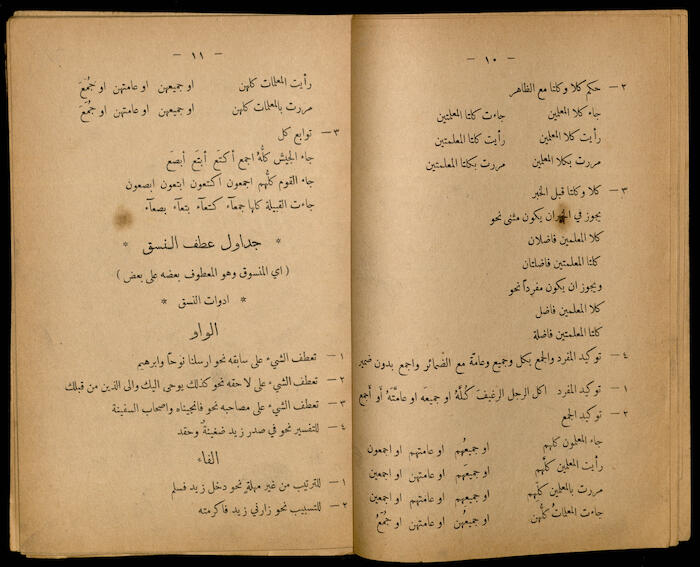 — ١٠ —
٢ — حكم كلا وكلتا مع الظاهر
جاء كلا المعلمين جاءت كلتا المعلمتين
رأيت كلا المعلمين رأيت كلتا المعلمتين
مررت بكلا المعلمين مررت بكلتا المعلمتين
٣ — كلا وكلتا قبل الخبر
يجوز في الخبر ان يكون مثنى نحو
كلا المعلمين فاضلان
كلتا المعلمتين فاضلتان
ويجوز ان يكون مفردًا نحو
كلا المعلمين فاضل
كلتا المعلمتين فاضلة
٤ — توكيد المفرد والجمع بكل وجميع وعامة مع الضمائر واجمع بدون ضمير
١ — توكيد المفرد اكل الرجل الرغيفَ كُلَّهُ او جميعَه او عامَّتَهُ أو أجمع
٢ — توكيد الجمع
جاء المعلمون كلهم او جميعُهم او عامتهم او اجمعون
رأيت المعلمين كلَّهم او جميعَهم او عامتهم او اجمعين
مررت بالمعلمين كلِّهم او جميعِهم او عامتهم او اجمعين
جاءت المعلماتُ كلُّهن او جميعُهن او عامتهن او جُمَعُ
— ١١ —
رأيت المعلمات كلهن او جميعهن او عامتهن او جُمَعَ
مررت بالمعلمات كلهن او جميعهن او عامتهن او جُمَعَ
٣ — توابع كل
جاء الجيش كلُّهُ اجمع أكتَع أبتَع أبصَع
جاء القوم كلُّهم اجمعون اكتعون ابتعون ابصعون
جاءت القبيلة كلها جمعآء كتعآء بتعآء بصعآء
* جداول عطف النسق *
(اي المنسوق وهو المعطوف بعضه على بعض)
* ادوات النسق *
الواو
١ — تعطف الشيء على سابقه نحو ارسلنا نوحًا وابرهيم
٢ — تعطف الشيء على لاحقه نحو كذلك يوحى اليك والى الذين من قبلك
٣ — تعطف الشيء على مصاحبه نحو فانجيناه واصحاب السفينة
٤ — للتفسير نحو في صدر زيد ضغينةٌ وحقد
الفاء
١ — للترتيب من غير مهلةٍ نحو دخل زيد فسلم
٢ — للتسبيب نحو زارني زيد فاكرمته